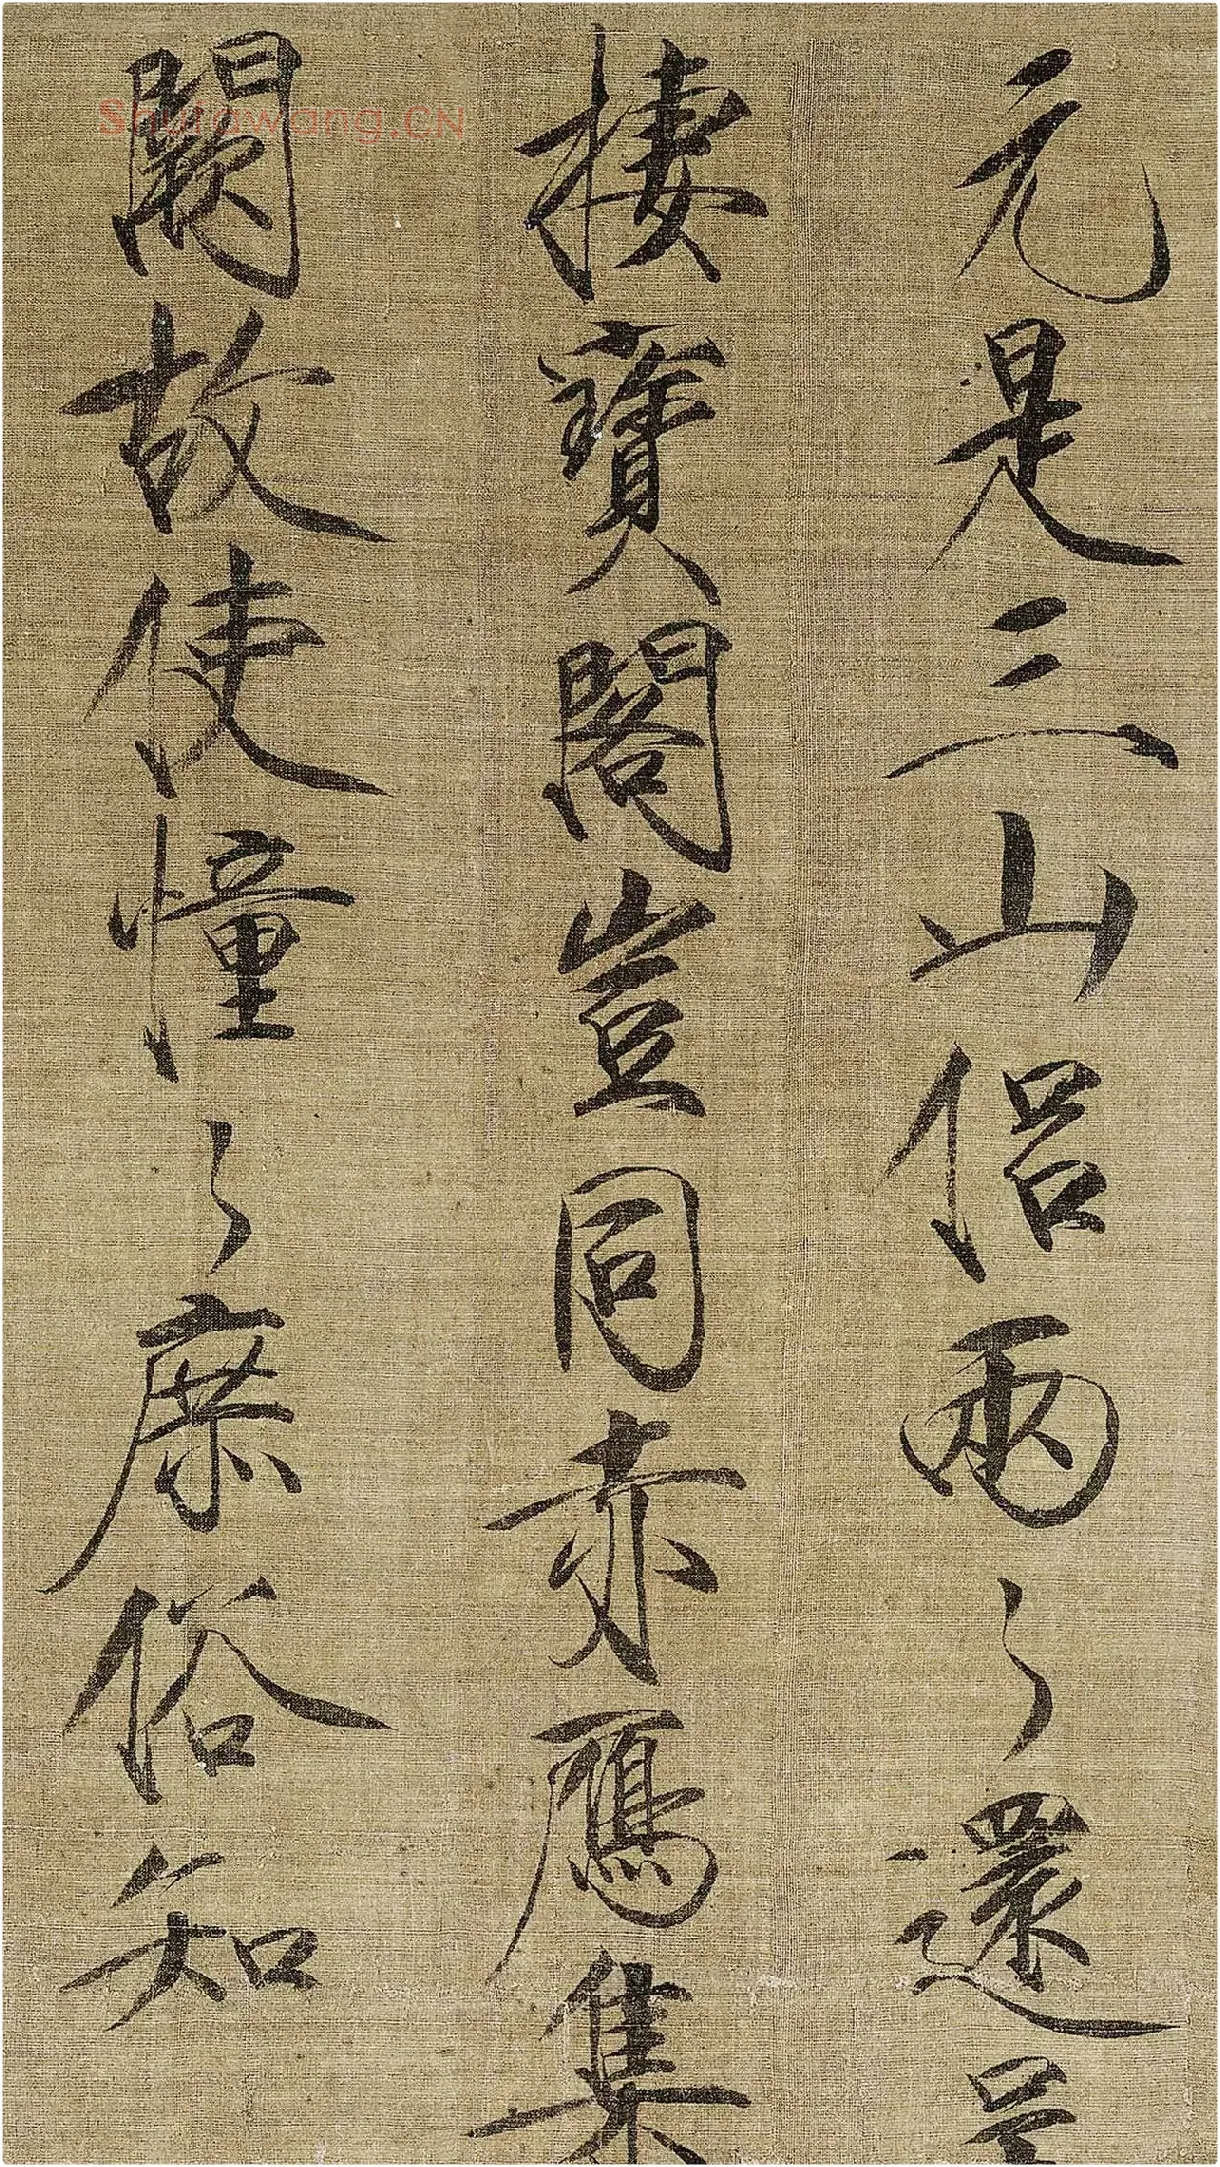 元是三山侶兩〻還呈
棲寶閣豈同赤鴈集
闕故使憧〻庶俗知
Shufawang.CN